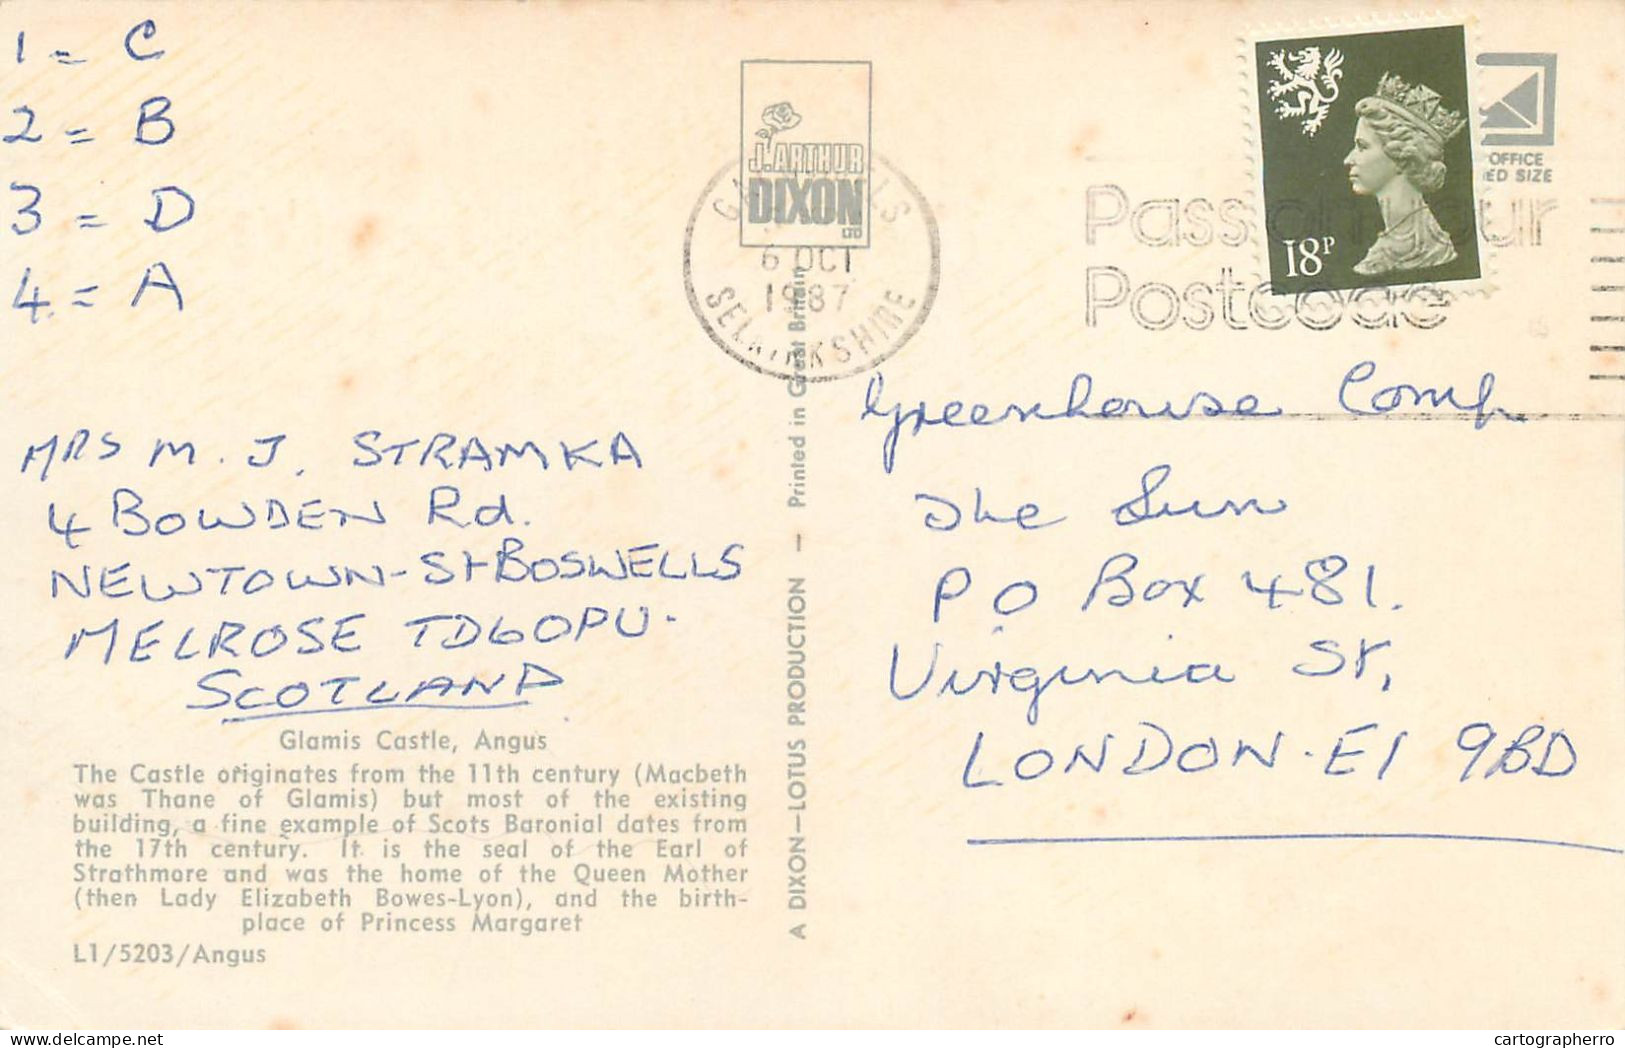 1 = C
2 = B
3 = D
4 = A
MRS M. J. STRAMKA
4 BOWDEN Rd.
NEWTOWN-St BOSWELLS
MELROSE TD6 0PU.
SCOTLAND
Glamis Castle, Angus
The Castle originates from the 11th century (Macbeth
was Thane of Glamis) but most of the existing
building, a fine example of Scots Baronial dates from
the 17th century. It is the seal of the Earl of
Strathmore and was the home of the Queen Mother
(then Lady Elizabeth Bowes-Lyon), and the birth-
place of Princess Margaret
L1/5203/Angus
J. ARTHUR
DIXON
LTD
6 OCT
1987
SELKIRKSHIRE
A DIXON—LOTUS PRODUCTION — Printed in Great Britain
18P
OFFICE
SIZE
Pass on your
Postcode
Greenhouse Comp
The Sun
PO Box 481.
Virginia St,
LONDON. E1 9BD
cartographerro